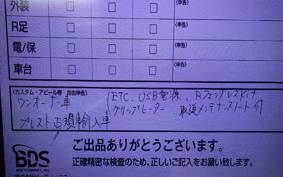 外装 □ □ □ (申告)
R足 □ □ □ (申告)
電/保 □ □ □ (申告)
車台 □ □ □ (申告)
(カスタム・アピール等 自由申告)
ワンオーナー車 ETC、USB電源、Rフェンダレスキット
プレスト正規輸入車 グリップヒーター、取説メンテナンスノート付
ご出品ありがとうございます。
正確精密な検査のため、正しいご記入をお願い致します。
BDS